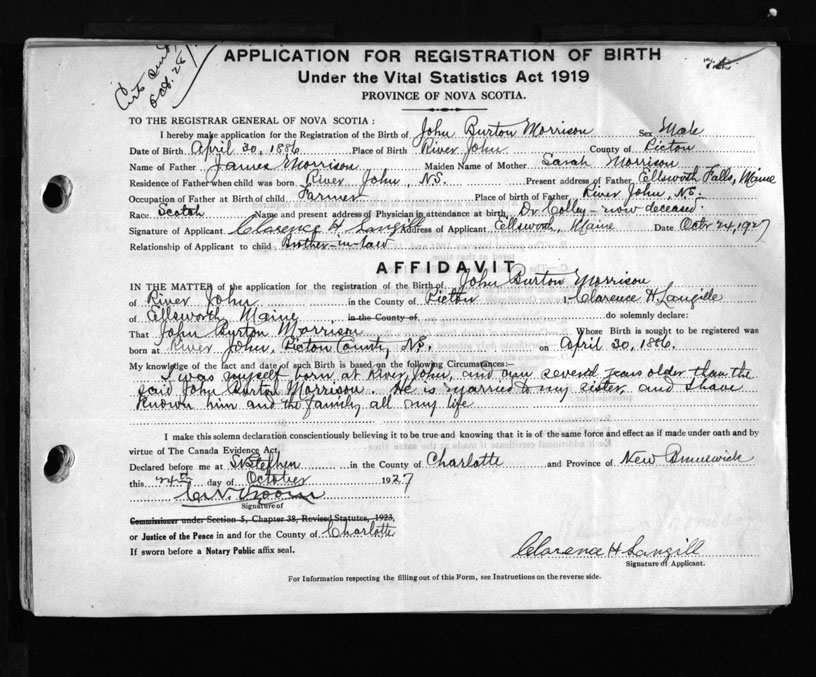 Certs sent
Oct. 28/
APPLICATION FOR REGISTRATION OF BIRTH
Under the Vital Statistics Act 1919
PROVINCE OF NOVA SCOTIA.
TO THE REGISTRAR GENERAL OF NOVA SCOTIA :
I hereby make application for the Registration of the Birth of John Burton Morrison Sex Male
Date of Birth April 30, 1886 Place of Birth River John County of Pictou
Name of Father James Morrison Maiden Name of Mother Sarah Morrison
Residence of Father when child was born River John, N.S. Present address of Father Ellsworth Falls, Maine
Occupation of Father at Birth of child Farmer Place of birth of Father River John, N.S.
Race Scotch Name and present address of Physician in attendance at birth Dr Colley - now deceased.
Signature of Applicant Clarence H Langill Address of Applicant Ellsworth, Maine Date Octr 24, 1927
Relationship of Applicant to child Brother-in-law
AFFIDAVIT
IN THE MATTER of the application for registration of the Birth of John Burton Morrison
of River John in the County of Pictou I, Clarence H. Langille
of Ellsworth, Maine in the County of do solemnly declare:
That John Burton Morrison Whose Birth is sought to be registered was
born at River John, Pictou County, N.S. on April 30, 1886.
My knowledge of the fact and date of such Birth is based on the following Circumstances:—
I was myself born at River John, and am several years older than the
said John Burton Morrison. He is married to my sister, and I have
known him and the family all my life
I make this solemn declaration conscientiously believing it to be true and knowing that it is of the same force and effect as if made under oath and by
virtue of The Canada Evidence Act,
Declared before me at St Stephen in the County of Charlotte and Province of New Brunswick
this 24th day of October 1927
Signature of
Commissioner under Section 5, Chapter 38, Revised Statutes, 1923,
or Justice of the Peace in and for the County of Charlotte
If sworn before a Notary Public affix seal.
Clarence H Langill
Signature of Applicant.
For Information respecting the filling out of this Form, see Instructions on the reverse side.